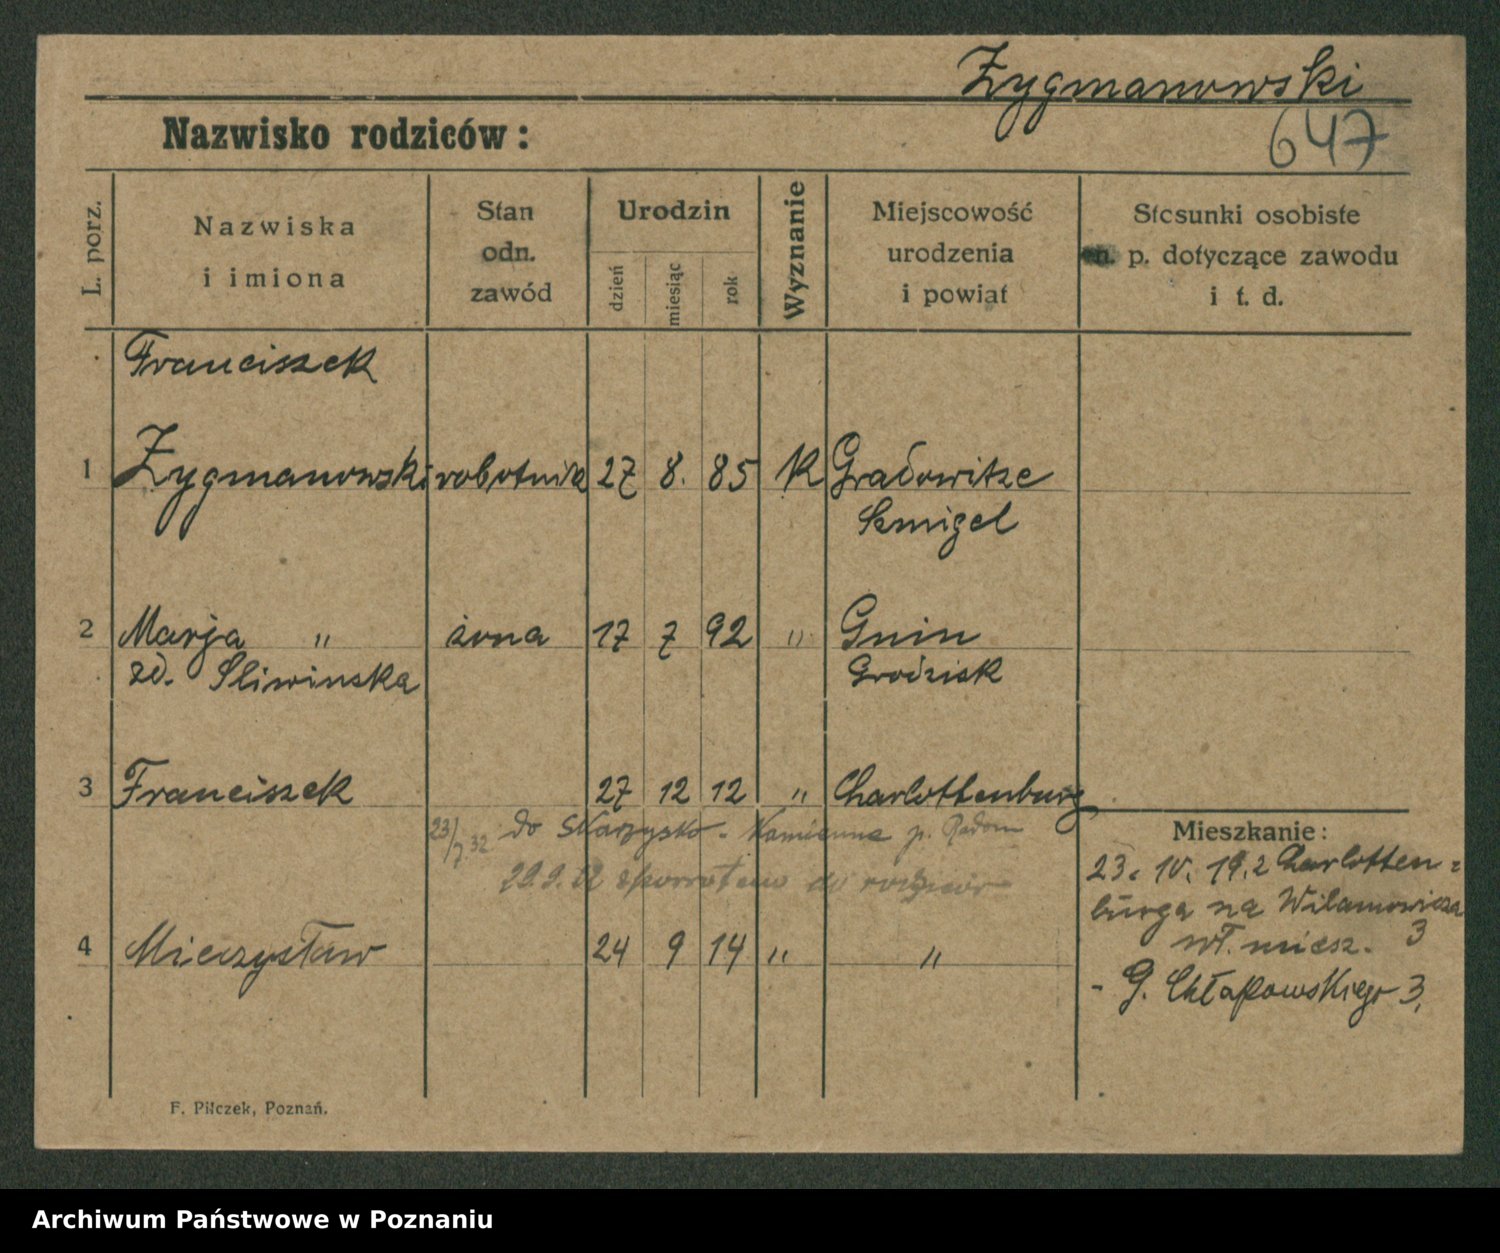 Zygmanowski
647
Nazwisko rodziców:
L. porz.
Nazwiska
i imiona
Stan
odn.
zawód
Urodzin
dzień
miesiąc
rok
Wyznanie
Miejscowość
urodzenia
i powiat
Stosunki osobiste
n. p. dotyczące zawodu
i t. d.
Franciszek
1 Zygmanowski robotnik 27 8. 85 K Gradowitze
Szmigel
2 Marja " żona 17 7 92 " Gnin
zd. Sliwinska Grodzisk
3 Franciszek 27 12 12 " Charlottenburg
23/7 32 do Skarzysko-Kamienna p. Radom
29.9. do rodziców
4 Mieczysław 24 9 14 " "
Mieszkanie:
23. 10. 19. z Charlotten=
burga na Wilamowicza
wł. miesz. 3
- G. Chłapowskiego 3,
F. Pilczek, Poznań.
Archiwum Państwowe w Poznaniu